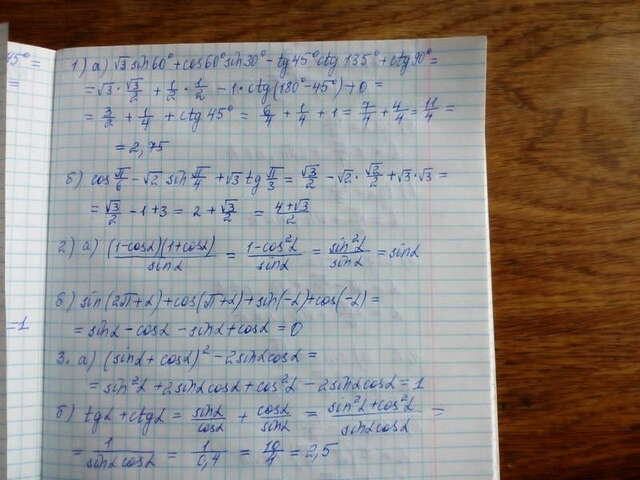 45°=
=
=1
1) а) √3 sin60°+cos60°sin30°-tg45°ctg135°+ctg90°=
=√3·√3/2 + 1/2·1/2 - 1·ctg(180°-45°)+0=
= 3/2 + 1/4 + ctg45° = 6/4 + 1/4 + 1 = 7/4 + 4/4 = 11/4 =
= 2,75
б) cos π/6 - √2 sin π/4 + √3 tg π/3 = √3/2 - √2·√2/2 + √3·√3 =
= √3/2 - 1 + 3 = 2 + √3/2 = 4+√3/2
2) а) (1-cosα)(1+cosα)/sinα = 1-cos²α/sinα = sin²α/sinα = sinα
б) sin(2π+α)+cos(π+α)+sin(-α)+cos(-α)=
= sinα - cosα - sinα + cosα = 0
3. а) (sinα + cosα)² - 2sinαcosα =
= sin²α + 2sinαcosα + cos²α - 2sinαcosα = 1
б) tgα + ctgα = sinα/cosα + cosα/sinα = sin²α+cos²α/sinαcosα =
= 1/sinαcosα = 1/0,4 = 10/4 = 2,5